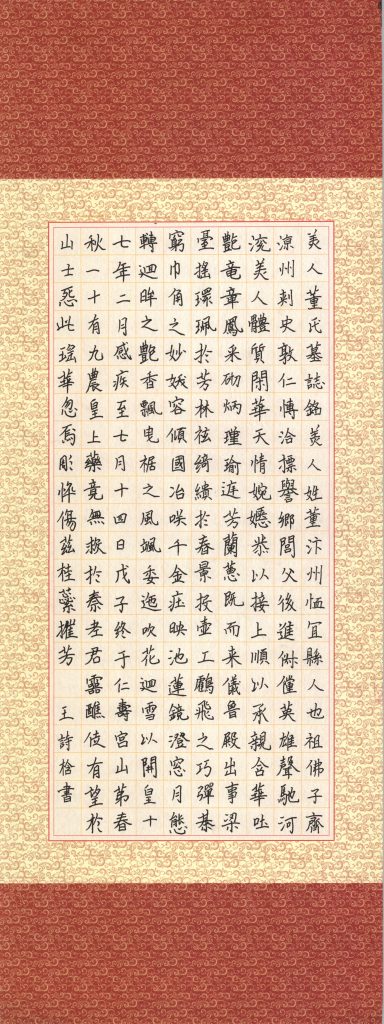 美人董氏墓誌銘美人姓董汴州恤宜縣人也祖佛子齊
涼州刺史敦仁慱洽摽譽鄉閭父後進俶儻英雄聲馳河
淩美人體質閑華天情婉嫕恭以接上順以承親含華吐
艷竜章鳳采砌炳瑾瑜庭芳蘭蕙既而来儀魯殿出事梁
臺搖環珮於芳林袨綺繢於春景投壺工鶴飛之巧彈棊
窮巾角之妙妖容傾國冶咲千金莊映池蓮鏡澄窓月態
轉迴眸之艷香飄曳裾之風颯委迤吹花迴雪以開皇十
七年二月感疾至七月十四日戊子終于仁壽宮山第春
秋一十有九農皇上藥竟無救於秦老君靈醮伎有望於
山士惡此瑤華忽焉彫悴傷茲桂蘂摧芳 王詩書